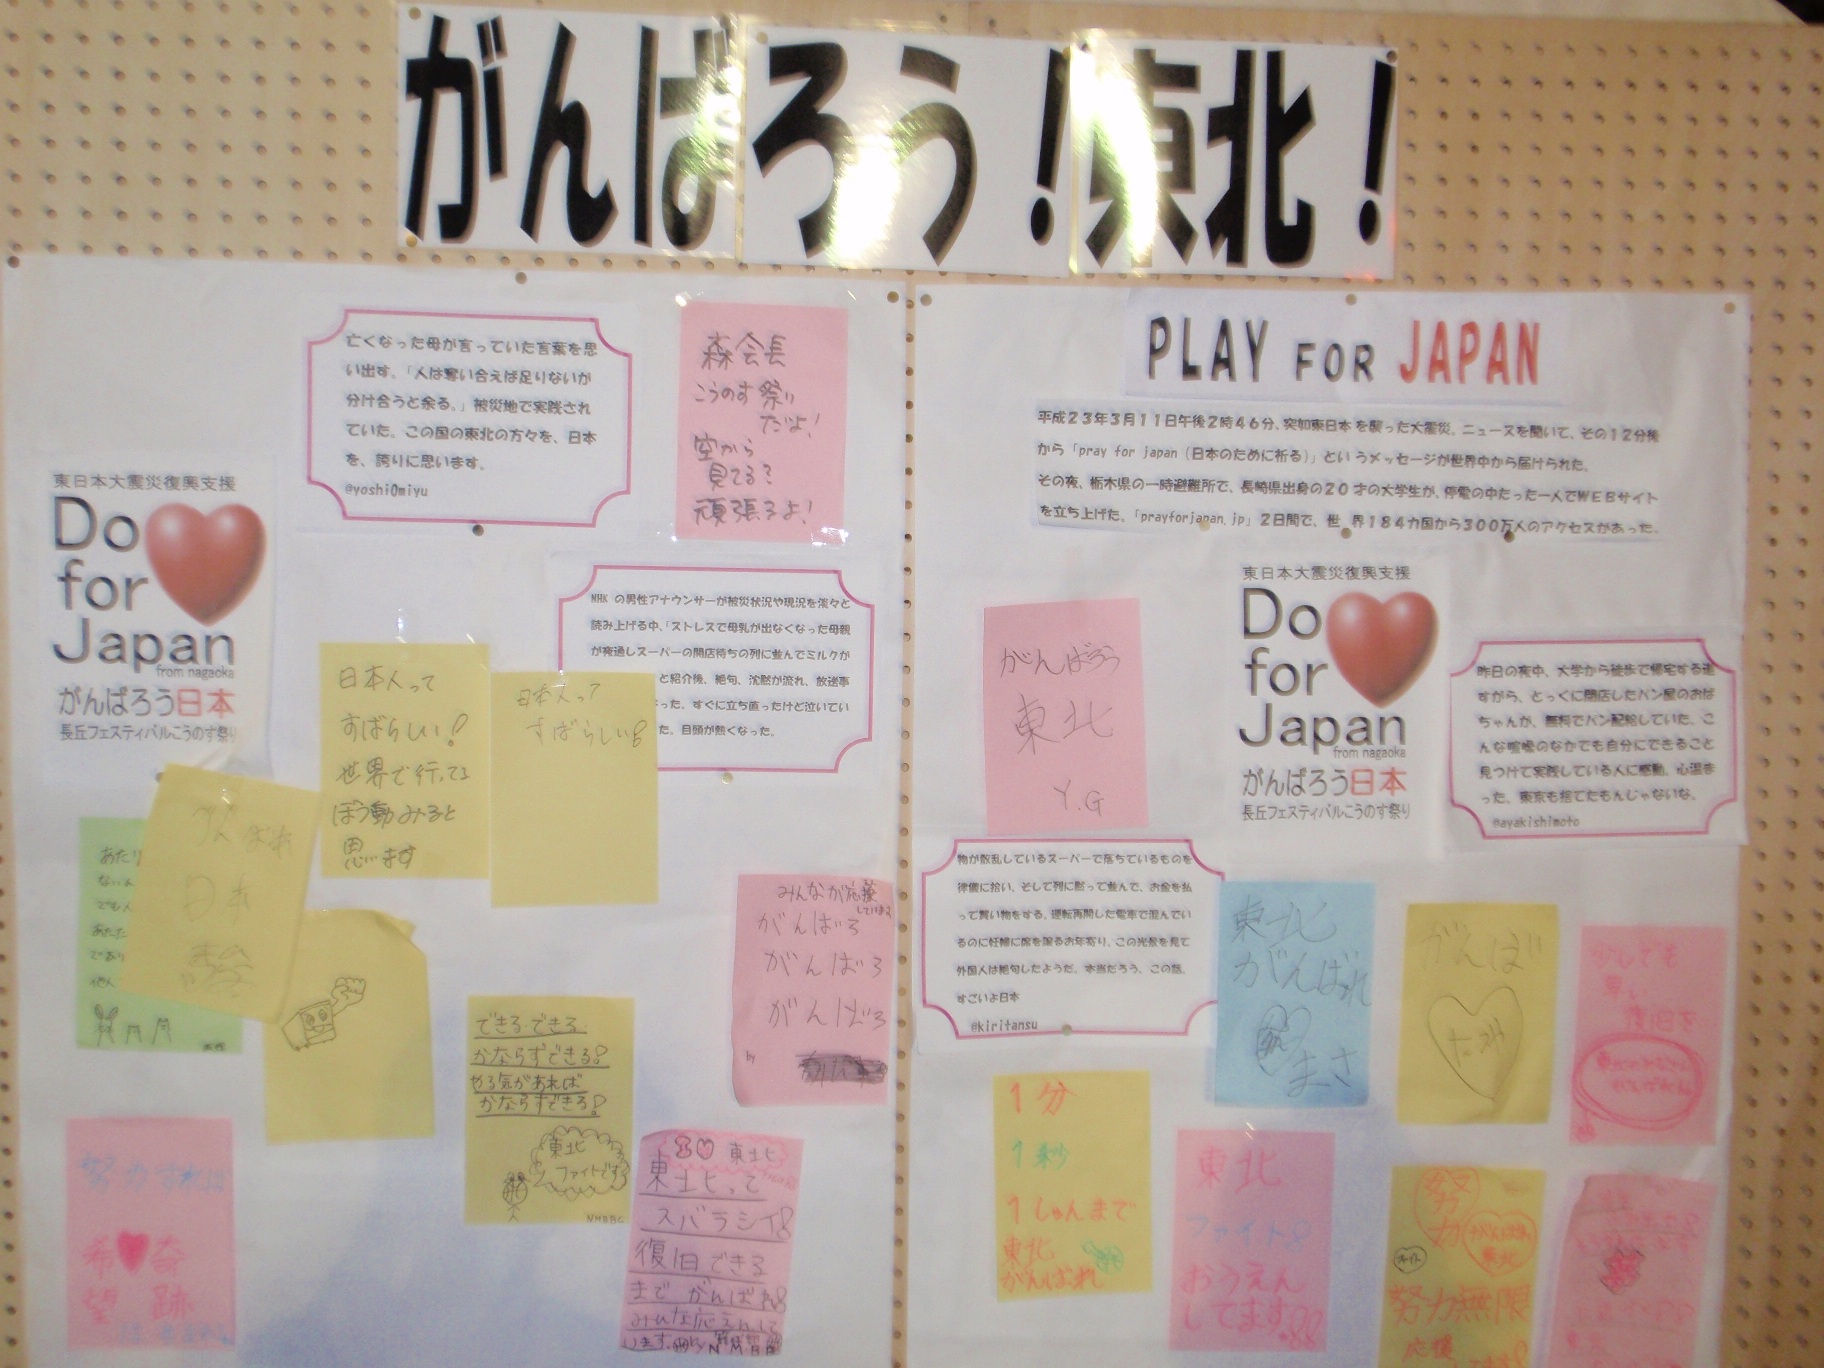 がんばろう！東北！
亡くなった母が言っていた言葉を思
い出す。「人は奪い合えば足りないが
分け合うと余る。」被災地で実践され
ていた。この国の東北の方々を、日本
を、誇りに思います。
@yoshi0miyu
森会長
こうのす祭り
だよ!
空から
見てる?
頑張るよ!
東日本大震災復興支援
Do
for
Japan
from nagaoka
がんばろう日本
長丘フェスティバルこうのす祭り
NHK の男性アナウンサーが被災状況や現況を淡々と
読み上げる中、「ストレスで母乳が出なくなった母親
が夜通しスーパーの開店待ちの列に並んでミルクが
と紹介後、絶句、沈黙が流れ、放送事
った。すぐに立ち直ったけど泣いてい
た。目頭が熱くなった。
日本人って
すばらしい!
世界で行ってる
ぼう動みると
思います
日本人って
すばらしい!
がんばれ
日本
あたり
ないん
でも人
あたた
であり
他人
みんなが応援
しています
がんばろ
がんばろ
がんばろ
by
できる・できる
かならずできる!
やる気があれば
かならずできる!
東北
ファイトです
NMBBC
努力すれば
希♥奇
望 跡
東北
東北って
スバラシイ!
復旧できる
まで がんばれ!
みんな応えんして
います。
PLAY FOR JAPAN
平成23年3月11日午後2時46分、突如東日本を襲った大震災。ニュースを聞いて、その12分後
から「pray for japan（日本のために祈る）」というメッセージが世界中から届けられた。
その夜、栃木県の一時避難所で、長崎県出身の20才の大学生が、停電の中たった一人でWEBサイト
を立ち上げた。「prayforjapan.jp」2日間で、世界184カ国から300万人のアクセスがあった。
がんばろう
東北
Y.G
東日本大震災復興支援
Do
for
Japan
from nagaoka
がんばろう日本
長丘フェスティバルこうのす祭り
昨日の夜中、大学から徒歩で帰宅する道
すがら、とっくに閉店したパン屋のおば
ちゃんが、無料でパン配給していた。こ
んな喧噪のなかでも自分にできること
見つけて実践している人に感動。心温ま
った。東京も捨てたもんじゃないな。
@ayakishimoto
物が散乱しているスーパーで落ちているものを
律儀に拾い、そして列に黙って並んで、お金を払
って買い物をする。運転再開した電車で混んでい
るのに妊婦に席を譲るお年寄り。この光景を見て
外国人は絶句したようだ。本当だろう、この話。
すごいよ日本
@kiritansu
東北
がんばれ
まさ
がんば
少しでも
早い
復旧を
1分
1秒
1しゅんまで
東北
がんばれ
東北
ファイト!
おうえん
してます!!
努力
がんばれ
東北
努力無限
応援